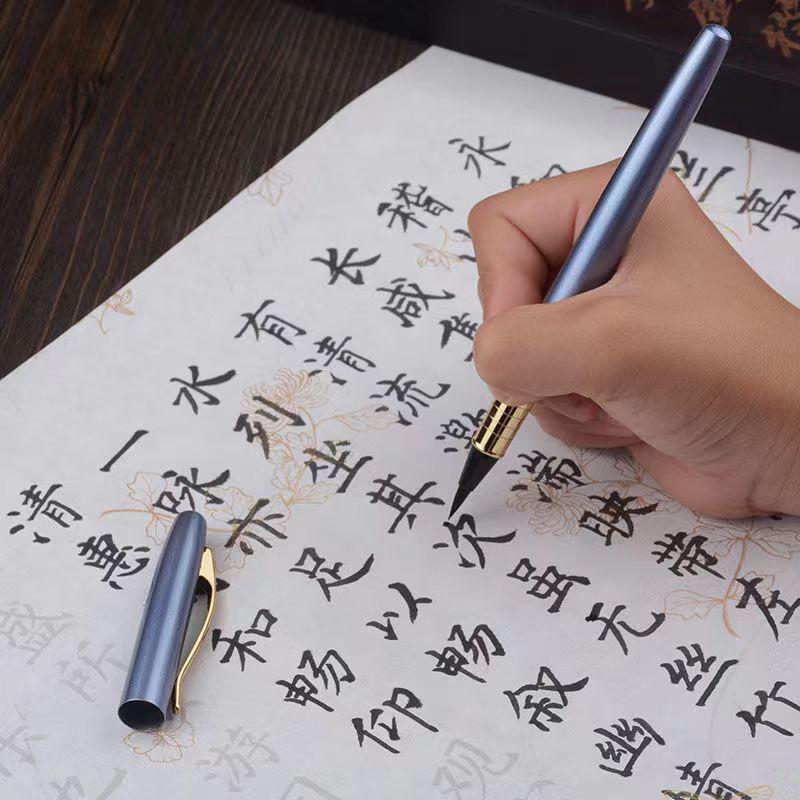 兰亭
永
稽
长咸集
有清流激湍映带左
水列坐其次虽无丝竹
一咏亦足以畅叙幽
清惠和畅仰观
盛所游